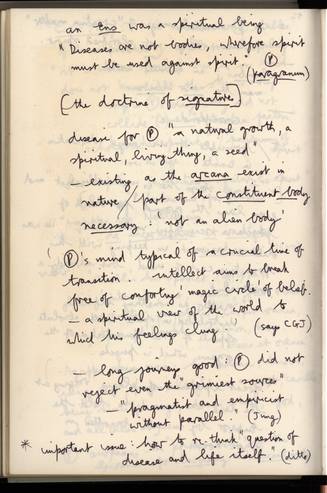 an Ens was a spiritual being
"Diseases are not bodies, wherefore spirit
must be used against spirit." Ⓟ
(paragranum)
[the doctrine of signatures]
disease for Ⓟ "a natural growth, a
spiritual, living thing, a seed"
– existing as the arcana exist in
nature / part of the constituent body
necessary : 'not an alien body'
' Ⓟ's mind typical of a crucial time of
transition. intellect aims to break
free of comforting 'magic circle' of belief.
– a spiritual view of the world to
which his feelings clung.' (says CGJ)
– long journeys good : Ⓟ did not
reject even the grimiest sources"
– "pragmatist and empiricist
without parallel." (Jung)
* important issue : how to re-think "question of
disease and life itself." (ditto)